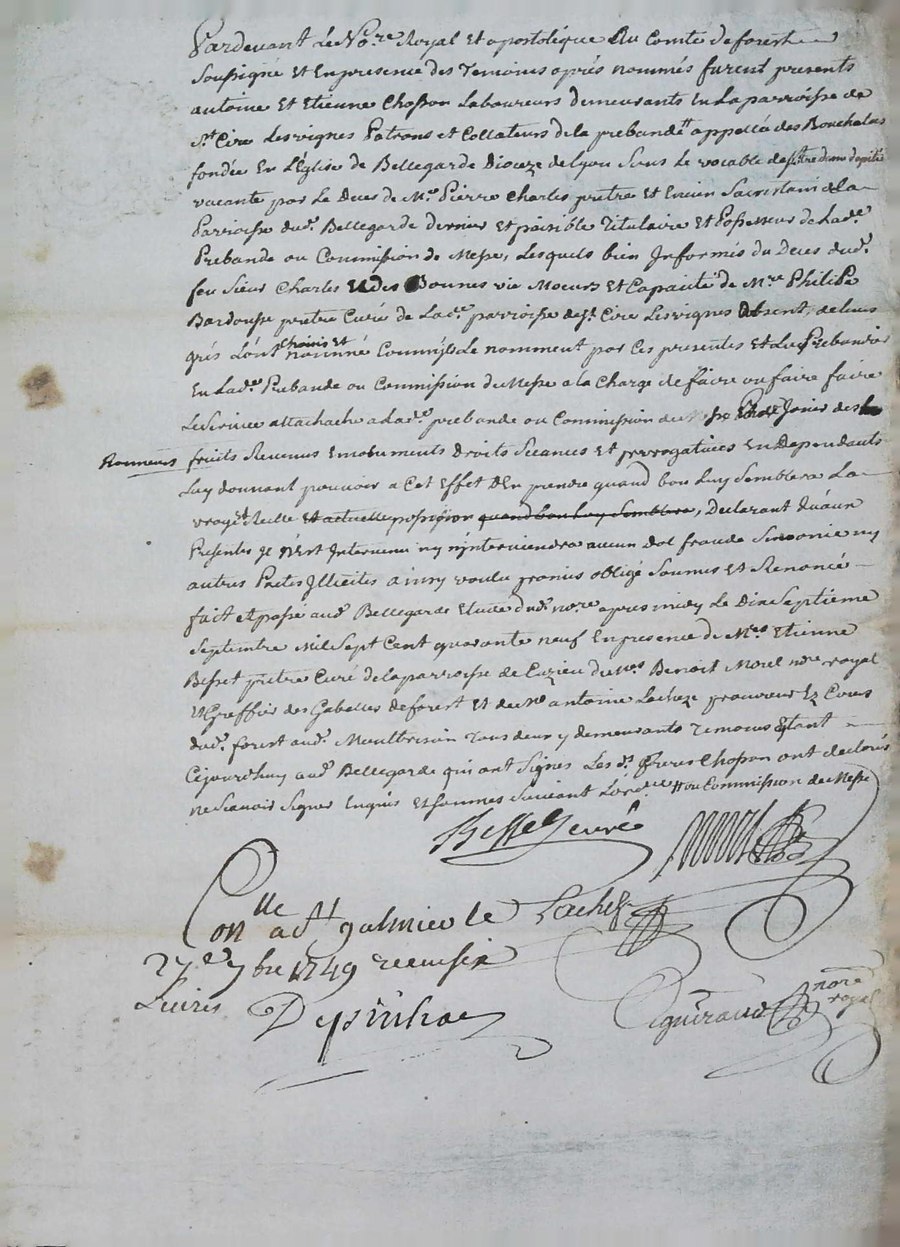 Pardevant Le No.re Royal Et apostolique Au Comté de forest
Soussigné Et En presence des Temoins aprés nommés furent presents
antoine Et Etienne Chosson Laboureurs demeurants En La parroisse de
St. Cire Les vignes Patrons et Collateurs de la prebande # appellée des Bouchelas
fondée En L'Eglise de Bellegarde Dioceze de Lyon Sous Le vocable de
vacante par Le Deces de Mre Pierre Charles pretre Et Encien Sacristain de La
Parroisse dud. Bellegarde dernier Et paisible Titulaire Et Possesseur de Lade.
Prebande ou Commission de Messe, Lesquels bien Informés du Deces dud.
feu Sieur Charles Et des Bonnes vie Moeurs Et Capacité de Mre Philipe
Bardousse pretre Curé de Lade. parroisse de St. Cire Les vignes Absent, de leurs
grés L'ont choisis et nommé Comm'Ils Le nomment par Ces presentes Et Le Prebandier
En Lade. Prebande ou Commission de Messe a la Charge de faire ou faire faire
Le Service attachache a Lade. prebande ou Commission de Messe Jouir des
honneurs fruits Revenus Emoluments Droits Sceances Et prerogatives En Dependants
Luy donnant pouvoir a Cet Effet D'En prendre quand bon Luy Semblera La
Reelle Et actuelle possession quand bon Luy Semblera, Declarant qu'aux
Presentes Il N'Est Intervenu ny n'Interviendra aucun dol fraude Simonie ny
autres Pactes Illicites ainsy voulu promis obligé Soumis Et Renoncé
fait et passé aud. Bellegarde Etude dud. nore apres midy Le Dixe Septieme
Septembre Mil Sept Cent quarante neuf En presence de Mres Etienne
Besset pretre Curé de La parroisse de Cuzieu de Mes Benoit Morel nore royal
Et Greffier des Gabelles de forest Et de Me antoine Lacheze procureur Ez Cours
dud. forest aud. Montbrison Tous deux y demeurants Temoins Etant
Cejourd'huy aud. Bellegarde qui ont Signés Les ds. freres Chosson ont declarés
ne Scavoir Signer Enquis Et Sommés Suivant L'ordce # ou Commission de Messe
Besset curé
Conlle a St galmier le Lacheze
27e 7bre 1749 receu six
Livres
Depinhac
Aguiraud nore
royal